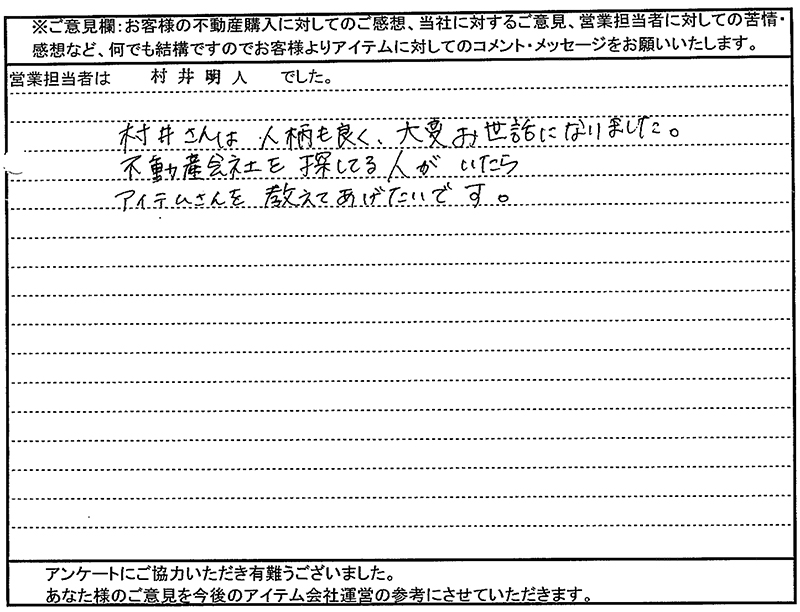 ※ご意見欄：お客様の不動産購入に対してのご感想、当社に対するご意見、営業担当者に対しての苦情・
感想など、何でも結構ですのでお客様よりアイテムに対してのコメント・メッセージをお願いいたします。
営業担当者は 村井明人 でした。
村井さんは 人柄も良く、大変お世話になりました。
不動産会社を探してる人が いたら
アイテムさんを 教えてあげたいです。
アンケートにご協力いただき有難うございました。
あなた様のご意見を今後のアイテム会社運営の参考にさせていただきます。